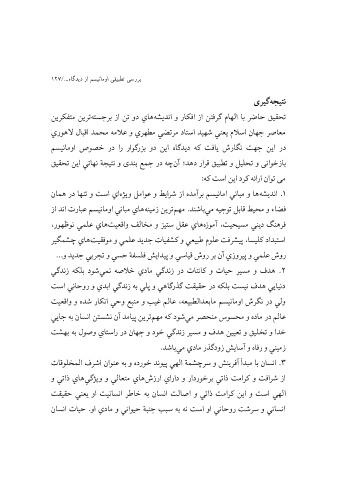 بررسی تطبیقی اومانیسم از دیدگاه.../۱۲۷
نتیجه‌گیری
تحقیق حاضر با الهام گرفتن از افکار و اندیشه‌هاي دو تن از برجسته‌ترین متفکرین
معاصر جهان اسلام یعني شهید استاد مرتضي مطهري و علامه محمد اقبال لاهوري
در این جهت نگارش یافت که دیدگاه این دو بزرگوار را در خصوص اومانیسم
بازخواني و تحلیل و تطبیق قرار دهد؛ آن‌چه در جمع بندی و نتیجة نهائي این تحقیق
می توان ارائه کرد این است که:
۱. اندیشه‌ها و مباني اومانیسم برآمده از شرایط و عوامل ویژه‌ای است و تنها در همان
فضاء و محیط قابل توجیه مي‌باشند. مهم‌ترین زمینه‌هاي مباني اومانیسم عبارت اند از
فرهنگ دیني مسیحیت، آموزه‌هاي عقل ستیز و مخالف واقعیت‌هاي علمي نوظهور،
استبداد کلیسا، پیشرفت علوم طبیعي و کشفیات جدید علمي و موفقیت‌هاي چشمگیر
روش علمي و پیروزي آن بر روش قیاسي و پیدایش فلسفة حسي و تجربي جدید و...
۲. هدف و مسیر حیات و کائنات در زندگي مادي خلاصه نمي‌شود بلکه زندگي
دنیایي هدف نیست بلکه در حقیقت گذرگاهي و پلي به زندگي ابدي و روحاني است
ولي در نگرش اومانیسم مابعدالطبیعه، عالم غیب و منبع وحي انکار شده و واقعیت
عالم در ماده و محسوس منحصر مي‌شود که مهم‌ترین پیامد آن نشستن انسان به جایي
خدا و تخلیق و تعیین هدف و مسیر زندگي خود و جهان در راستاي وصول به بهشت
زمیني و رفاه و آسایش زودگذر مادي مي‌باشد.
۳. انسان با مبدأ آفرینش و سرچشمة الهي پیوند خورده و به عنوان اشرف المخلوقات
از شرافت و کرامت ذاتي برخوردار و داراي ارزش‌هاي متعالي و ویژگي‌هاي ذاتي و
الهي است و این کرامت ذاتي و اصالت انسان به خاطر انسانیت او یعني حقیقت
انساني و سرشت روحاني او است نه به سبب جنبة حیواني و مادي او. حیات انسان